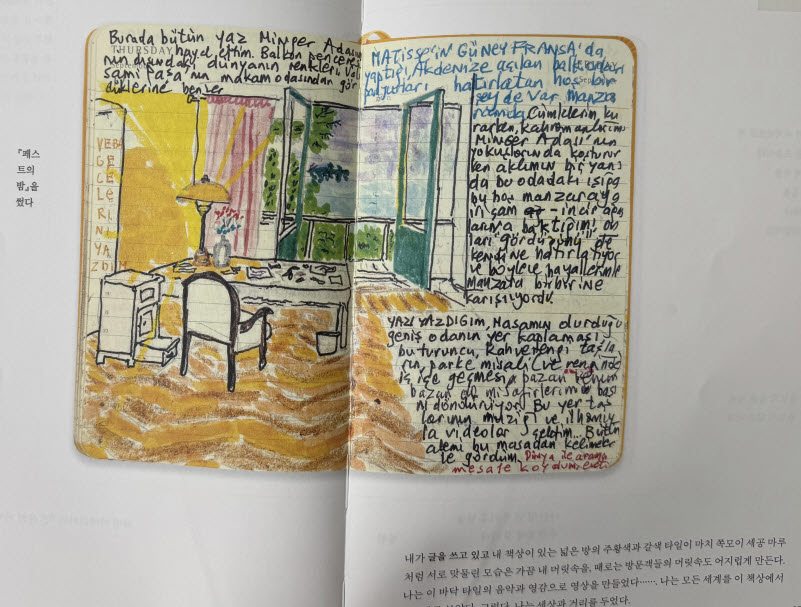 Burada bütün yaz Minger Adası
THURSDAY
nın dışındaki dünyanın renkleri, Vali
Sami Paşa'nın makam odasından gör
düklerine benzer
MATİSSE'İN GÜNEY FRANSA'da
yaptığı, Akdenize açılan balkonları
hatırlatan hoş bir
şey de var manza
ramda. Cümlelerim, ku
rarken, kahramanlarımı
Minger Adası'nın
yokuşlarında koşturur
ken aklımın bir yanı
da bu odadaki ışığa
bu hoş manzaraya
ları gördüğümü de
kendine hatırlatıyor
ve böylece hayallerimle
Manzara birbirine
karışıyordu.
VEBA
GE
CE
LE
Rİ
Nİ
YA
ZDIM
YAZI YAZDIĞIM, Masamın durduğu
geniş odanın yer kaplaması
bu turuncu, kahverengi taşla
rın, parke misali
iç içe geçmesi, bazan benim
bazan da misafirlerimin başı
nı döndürüyor. Bu yer taş
larının müziği ve ilhamıy
la videolar çektim. Bütün
alemi bu masadan kelimeler
le gördüm. Dünya ile arama
mesafe koydum, evet
『페스
트의
밤』을
썼다
내가 글을 쓰고 있고 내 책상이 있는 넓은 방의 주황색과 갈색 타일이 마치 쪽모이 세공 마루
처럼 서로 맞물린 모습은 가끔 내 머릿속을, 때로는 방문객들의 머릿속도 어지럽게 만든다.
나는 이 바닥 타일의 음악과 영감으로 영상을 만들었다……. 나는 모든 세계를 이 책상에서
그렇다, 나는 세상과 거리를 두었다.